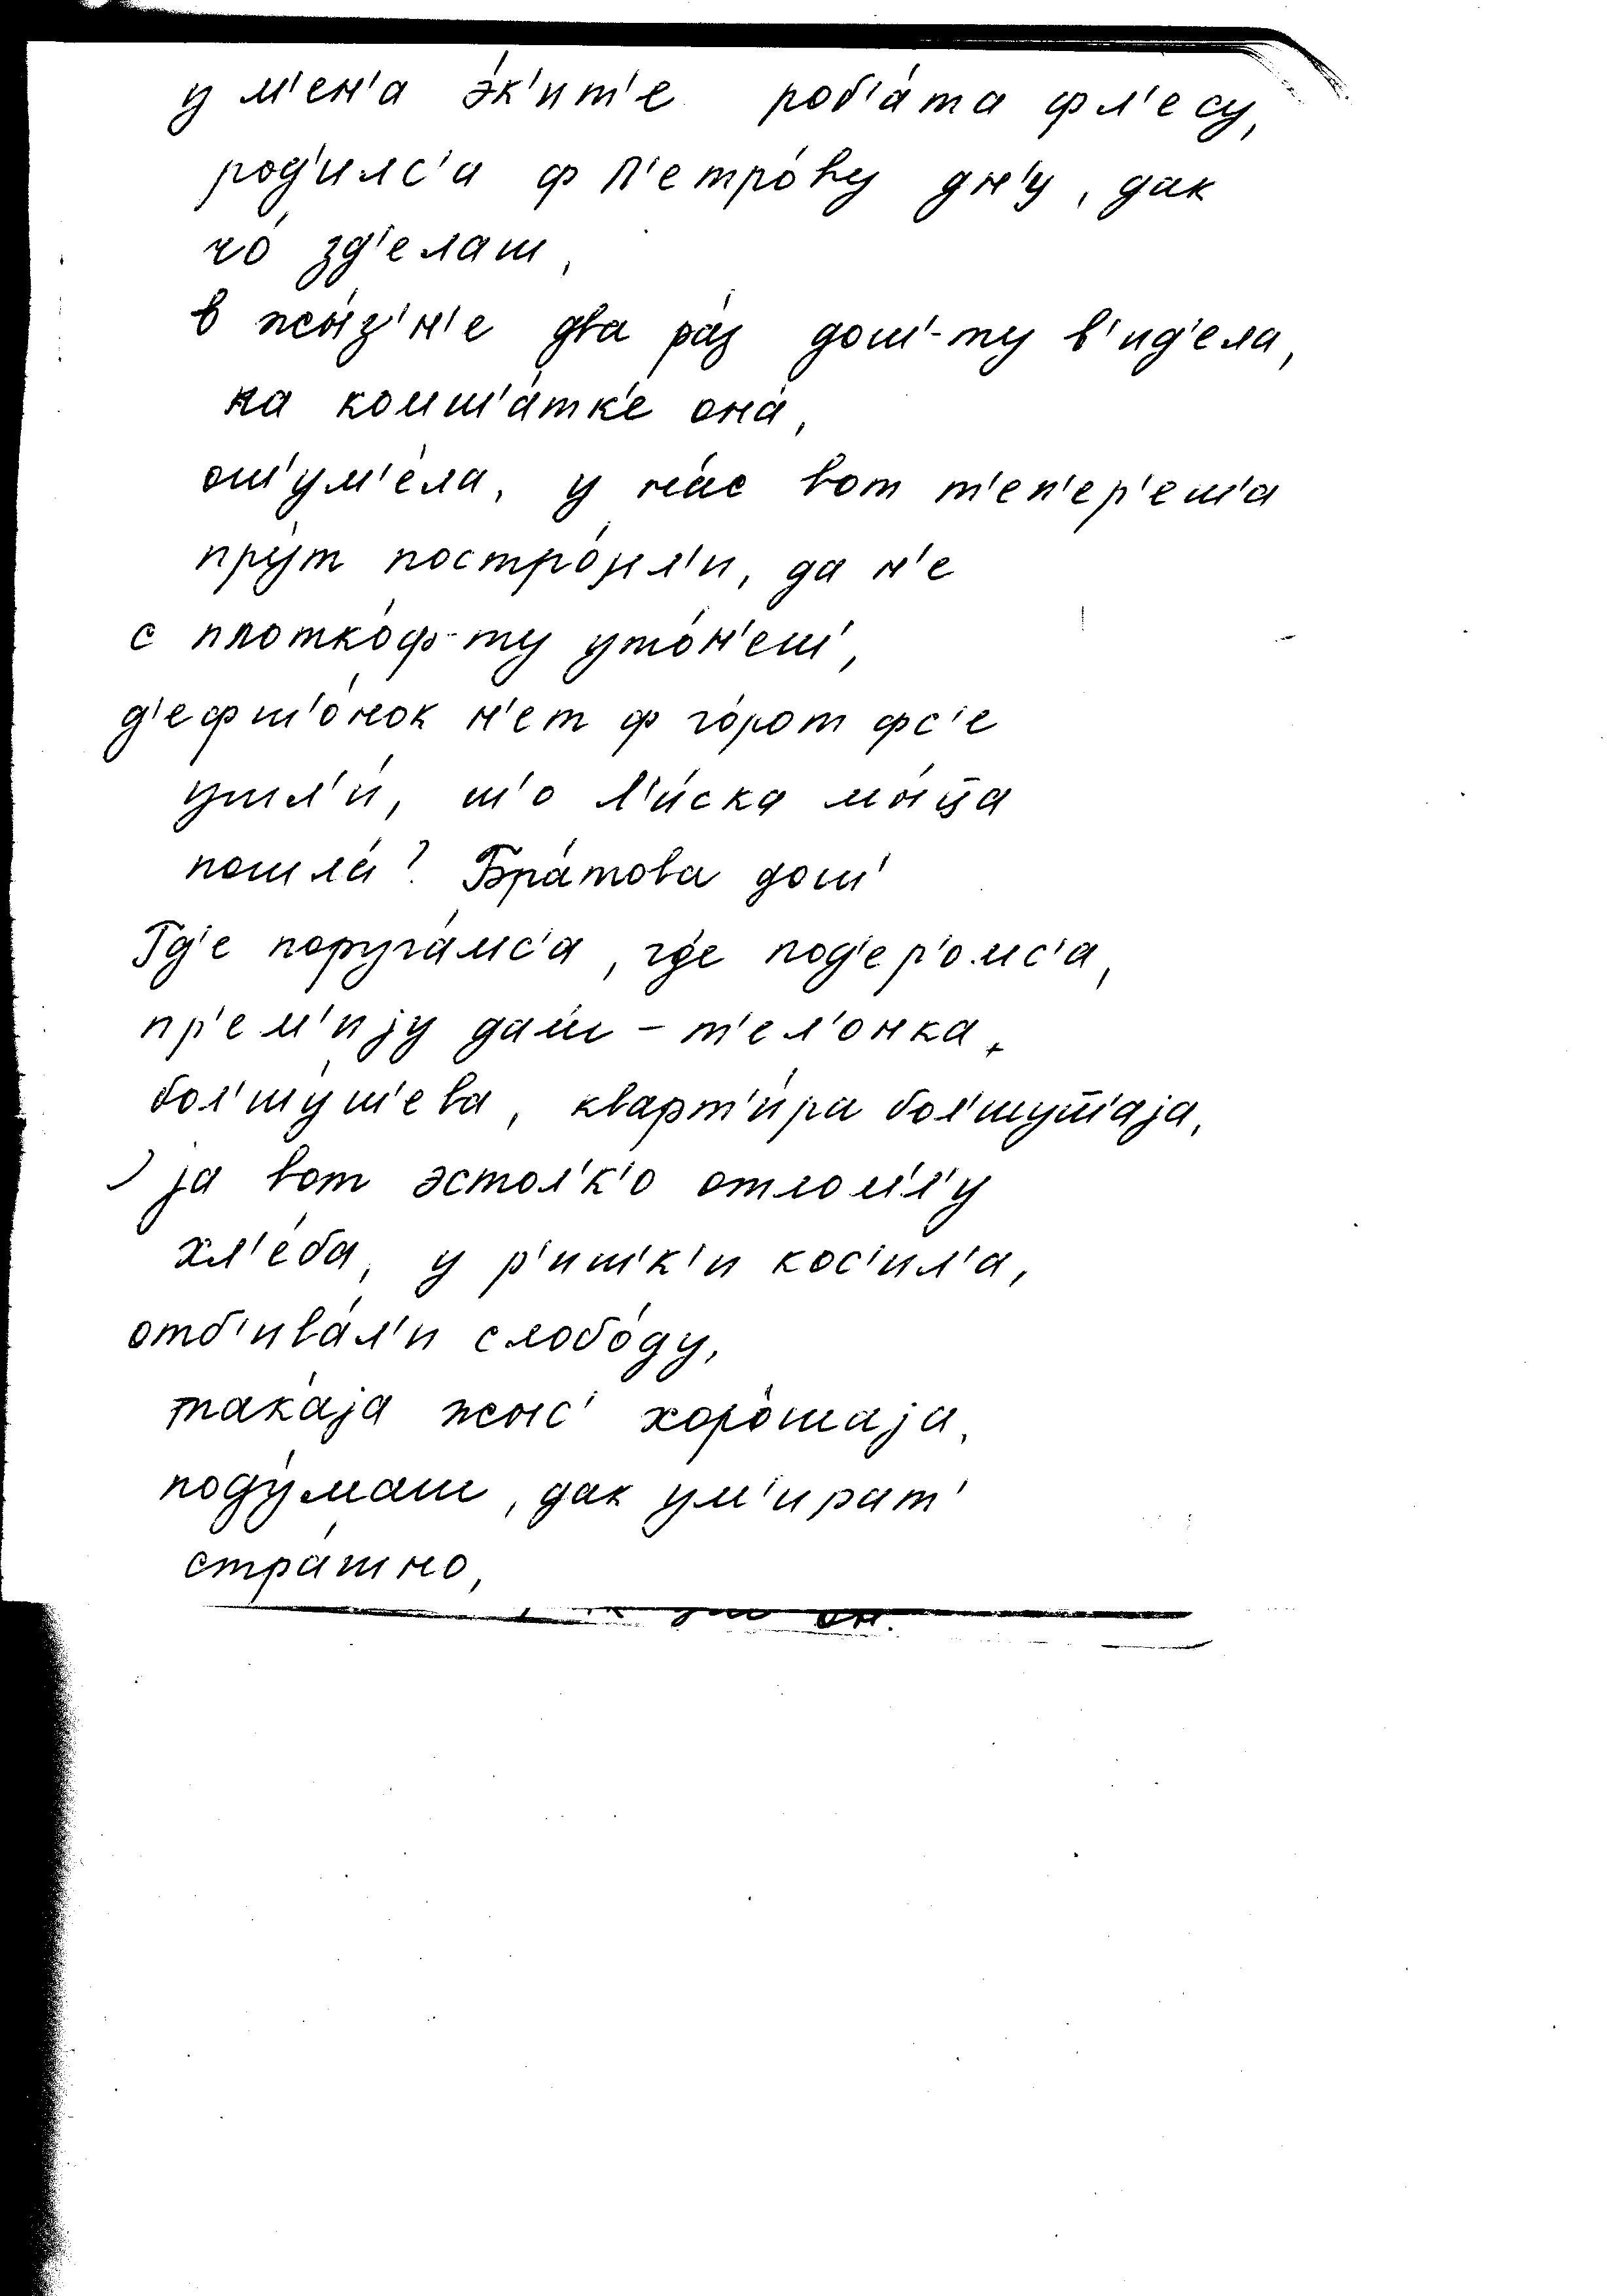 у м'ен'а э́к'ит'е роб'а́та фл'есу,
род'илс'а ф П'етро́ву дн'у, дак
чо́ зд'елаш,
в жы́з'н'е два ра́з дош'-ту в'ид'ела,
на комш'а́тк'е она́,
ош'ум'е́ла, у на́с вот т'еп'ер'еш'а
пру́т постро́јил'и, да н'е
с плотко́ф-ту уто́н'еш',
д'ефш'о́нок н'ет ф го́рот фс'е
ушл'и́, ш'о Л'и́ска мы́ца
пошла́? Бра́това дош'
Гд'е поруга́мс'а, гд'е под'ер'о.мс'а,
пр'ем'ију даш – т'ел'онка,
бол'шу́ш'ева, кварт'и́ра бол'шуш̅'аја,
ја вот эстол'к'о отломл'у
хл'е́ба, у р'иш'к'и кос'ил'а,
отб'ива́л'и слобо́ду,
така́ја жыс' хоро́шаја,
поду́маш, дак ум'ират'
стра́шно,